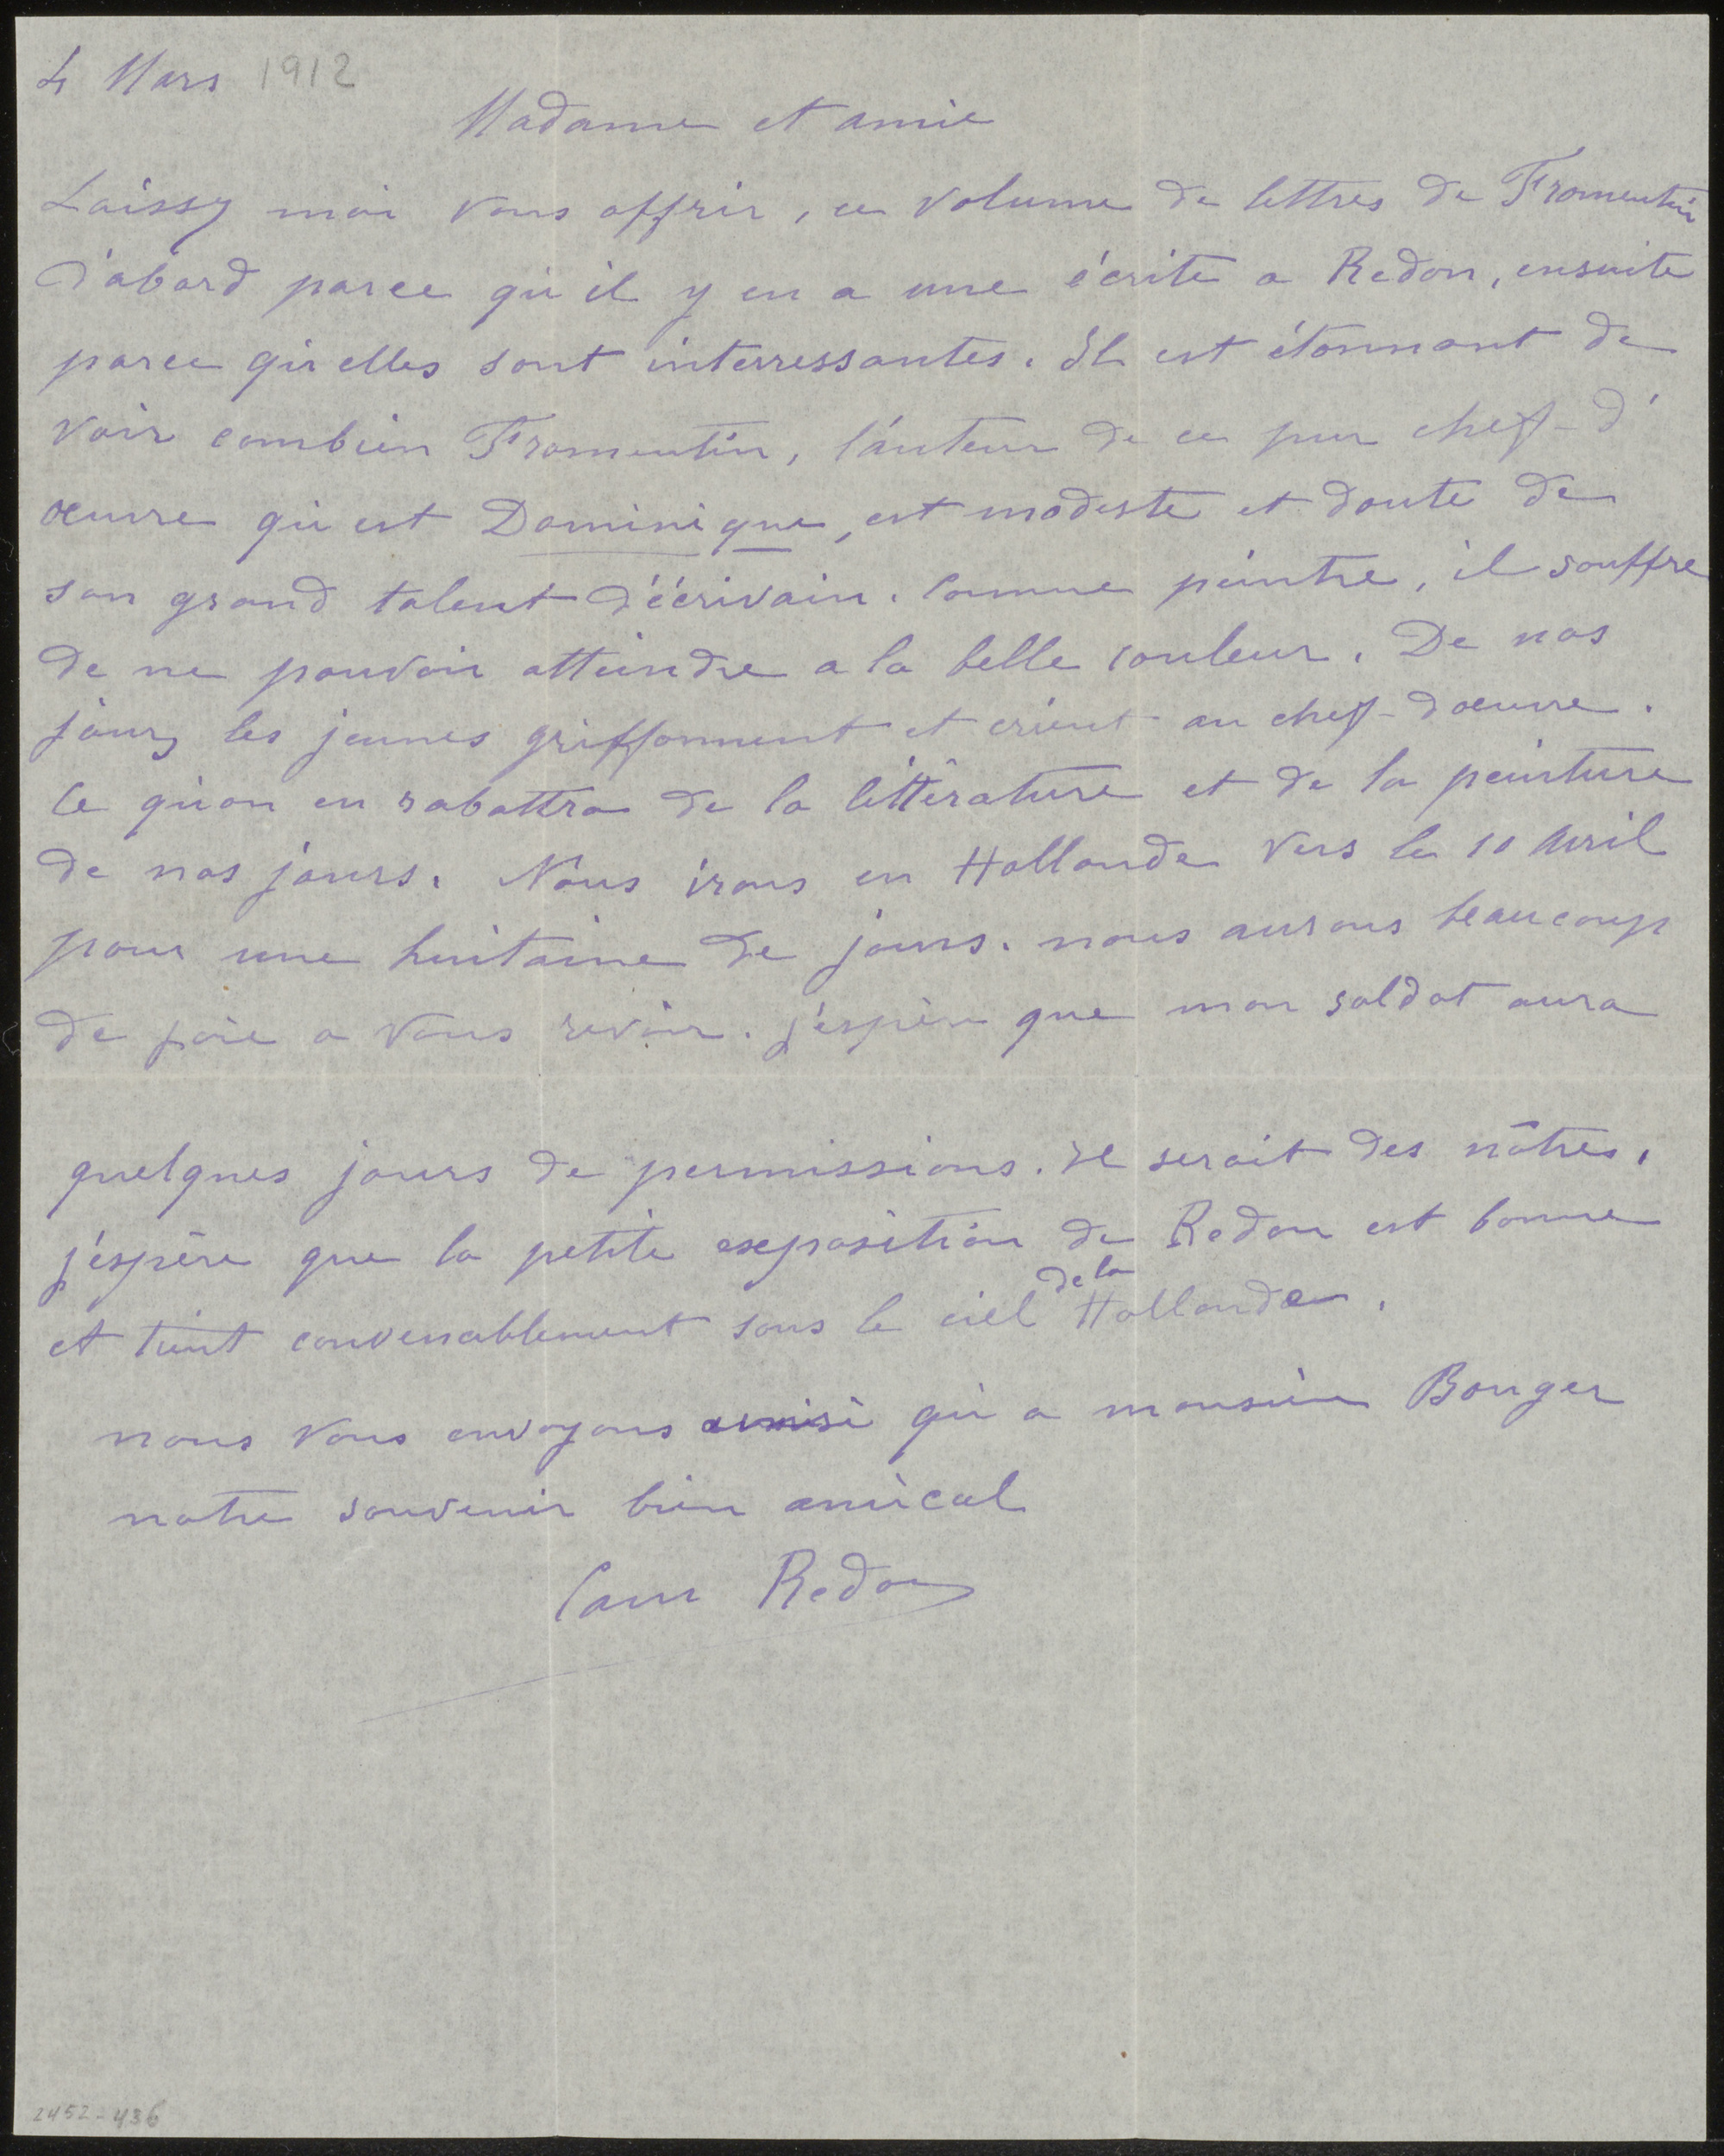 4 Mars 1912
Madame et amie
Laissez moi vous offrir, ce volume de lettres de Fromentin
d'abord parce qu'il y en a une écrite a Redon, ensuite
parce qu'elles sont interressantes. Il est étonnant de
voir combien Fromentin, l'auteur de ce pur chef-d'
œuvre qu'est Dominique, est modeste et doute de
son grand talent d'écrivain. Comme peintre, il souffre
de ne pouvoir atteindre a la belle couleur. De nos
jours les jeunes griffonnent et crient au chef-d'œuvre.
Ce qu'on en rabattra de la littérature et de la peinture
de nos jours. Nous irons en Hollande vers le 10 Avril
pour une huitaine de jours. nous aurons beaucoup
de joie a vous revoir. j'espère que mon soldat aura
quelques jours de permissions. Il serait des nôtres.
j'espère que la petite exposition de Redon est bonne
et tient convenablement sous le ciel de la Hollande.
nous vous envoyons ainsi qu'a monsieur Bonger
notre souvenir bien amical
Cam Redon
2452-436